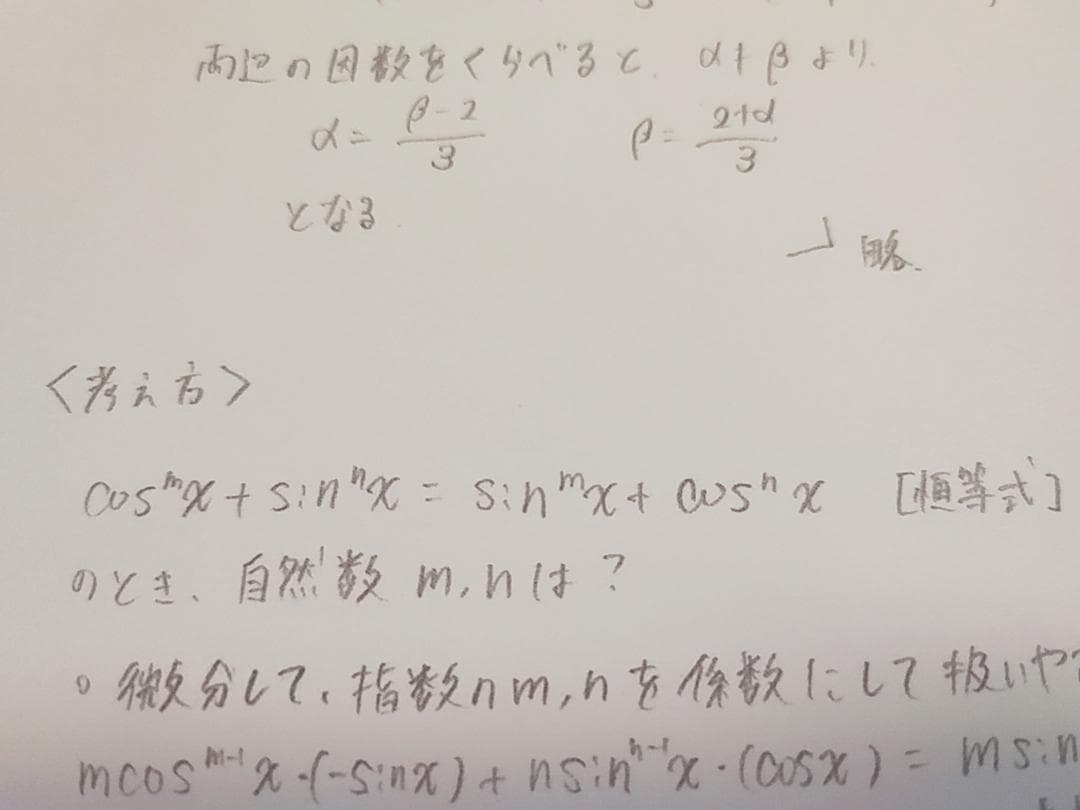 両辺の因数をくらべると、α+βより
α = (β-2)/3 β = (2+α)/3
となる
」略.
<考え方>
cos^m x + sin^n x = sin^m x + cos^n x [恒等式]
のとき、自然数 m, n は?
○ 微分して、指数n m, n を係数にして扱いや
m cos^(m-1) x・(-sin x) + n sin^(n-1) x・(cos x) = m sin